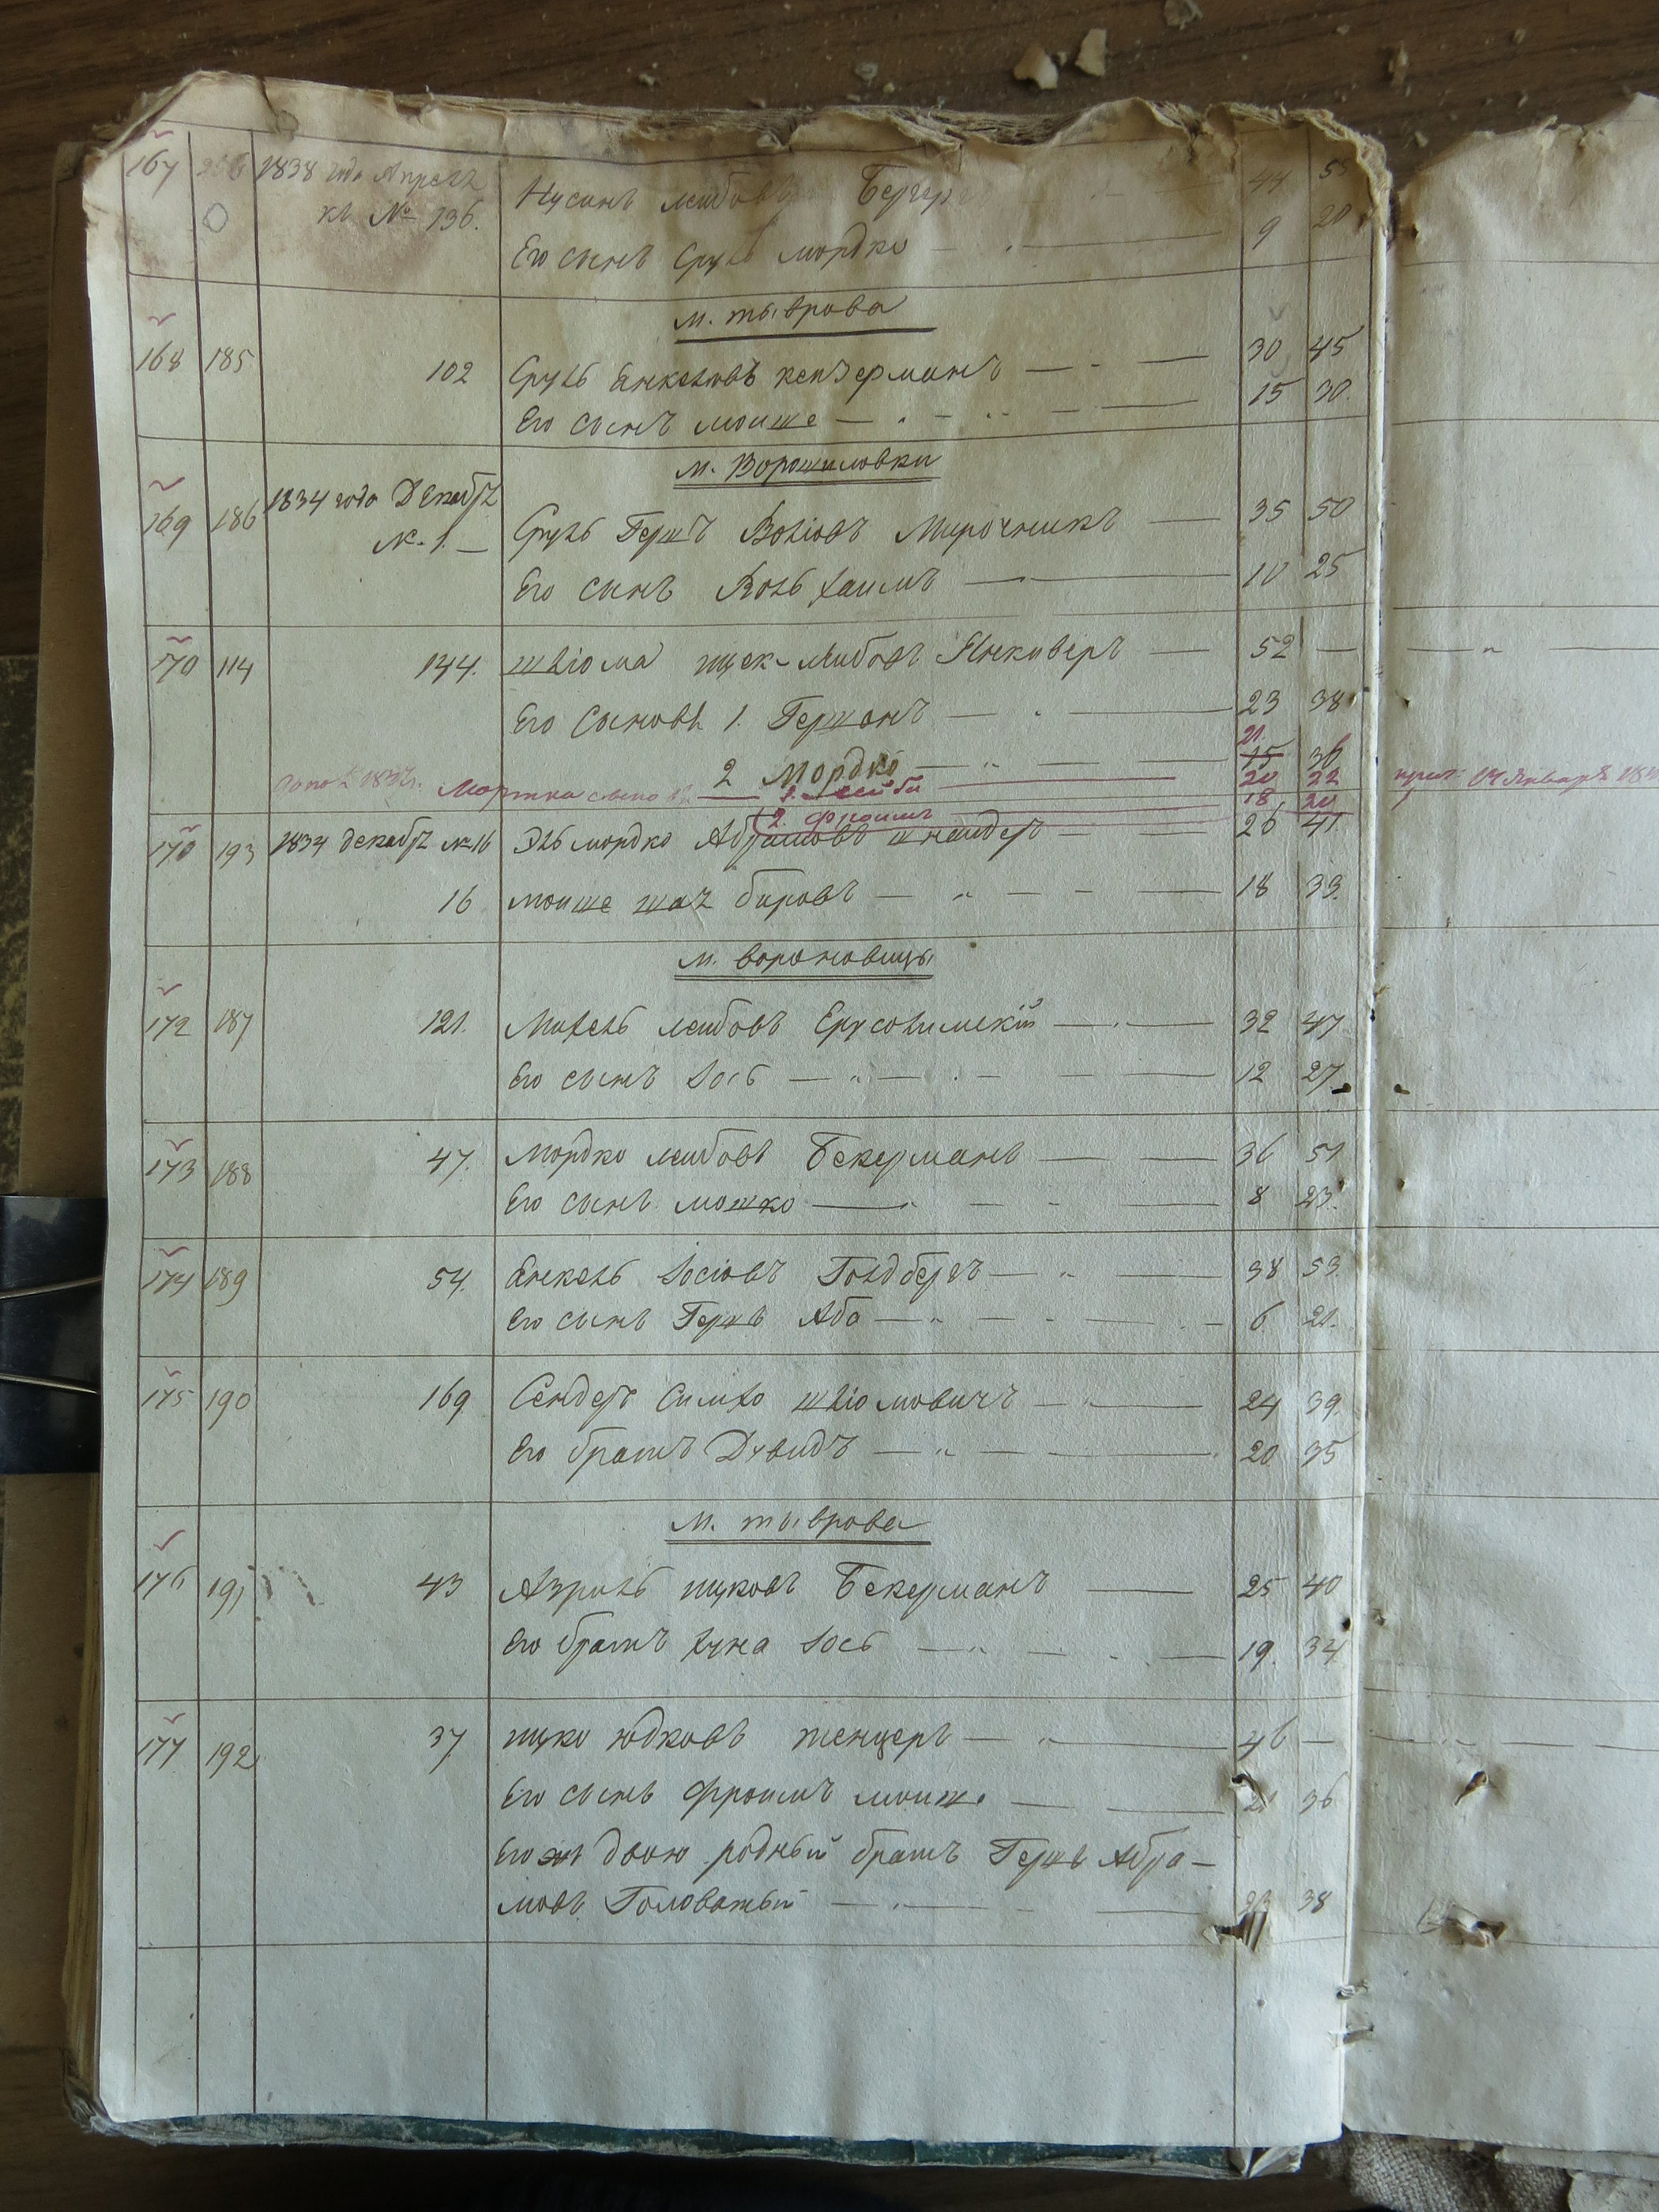 167 1838 года Апрель Нусинъ Лейбовъ Бергер 44 55
къ № 136.
Его сынъ Сруль Мордко 9 20
м. Тыврова
168 185 102 Сруль Янкелювъ Кензерманъ 30 45
Его сынъ Моише 15 30.
м. Ворошиловки
169 186 1834 года Декабрь Сруль Гершъ Волювъ Мирочникъ 35 50
№. 1.
Его сынъ Воль Хаимъ 10 25
170 114 144. Шліома Ицек-Лейбовъ Янкиверъ 52 — "
Его Сыновья 1. Гершонъ 23 38
21.
2 Мордко 15 30
Мортка сыновья 1. Лейба 20 22
2. Фроимъ 18 20
170 193 1834 декабрь № 16 Эль Мордко Абрамовъ Шнайдеръ 26 41
16 Моише Шая Бировъ 18 33.
м. Вороновицы
172 187 121. Михель Лейбовъ Ерусолимскій 32 47
Его сынъ Іось 12 27.
173 188 47. Мордко Лейбовъ Бекерманъ 36 51
Его сынъ Мошко 8 23.
174 189 54. Янкель Іосіовъ Голдбергъ 38 53.
Его сынъ Гершъ Аба 6 21.
175 190 169 Сендеръ Симхо Шліомовичъ 24 39.
Его братъ Дувидъ 20 35
м. Тыврова
176 191 43 Азриль Ицковъ Бекерманъ 25 40
Его братъ Хуна Іось 19. 34
177 192 37 Ицко Юдковъ Тенцеръ 46 —
Его сынъ Фроимъ Моише 21 36
Его двою родный братъ Гершъ Абра-
мовъ Головатый 23 38